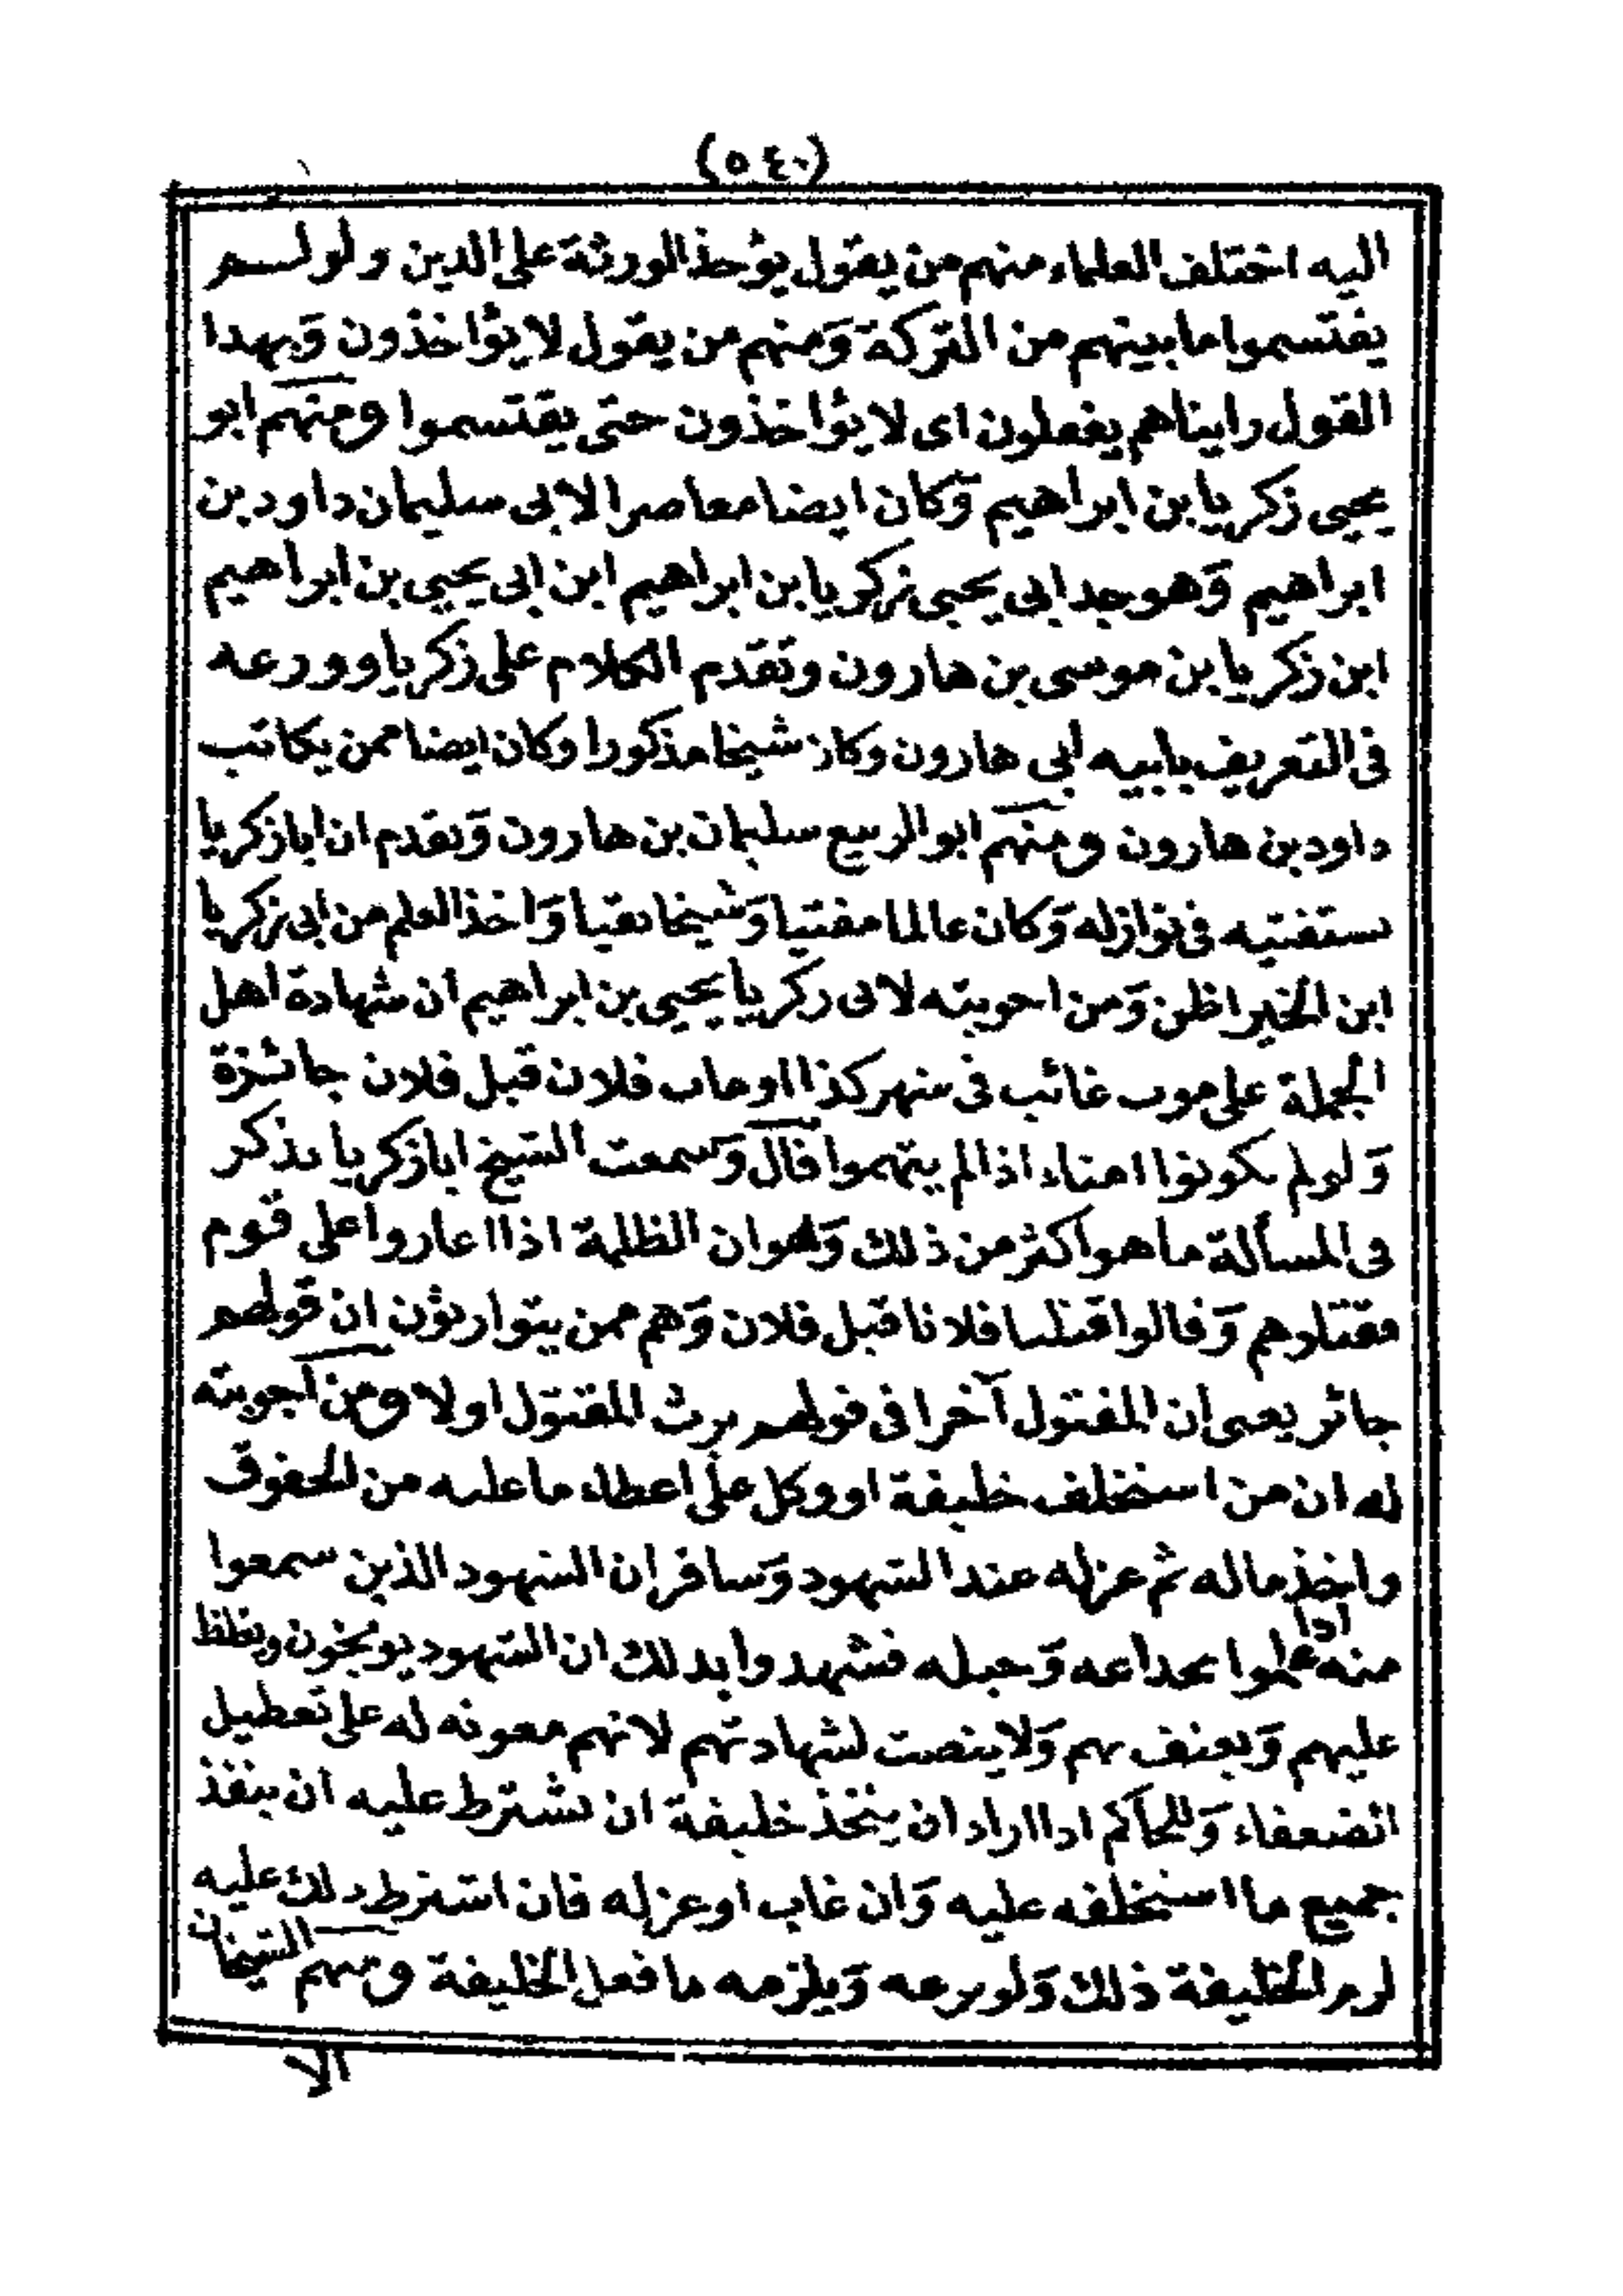 (٥٤٠)
اليه اختلف العلماء منهم من يقول يؤخذ الورثة على الدين ولو لم
يقتسموا ما بينهم من التركة وَمنهم من يقول لا يؤاخذون وَبهذا
القول رايناهم يفعلون اى لا يؤاخذون حتى يقتسموا ومنهم ابو
يحيى زكريا بن ابراهيم وَكان ايضا معاصرا لابى سليمان داود بن
ابراهيم وَهو جد ابى يحيى زكريا بن ابراهيم ابن ابى يحيى بن ابراهيم
ابن زكريا بن موسى بن هارون وتقدم الكلام على زكريا وورعه
فى التعريف بابيه ابى هارون وكان شيخا مذكورا وكان ايضا ممن يكاتب
داود بن هارون ومنهم ابو الربيع سليمان بن هارون وَتقدم ان ابا زكريا
يستفتيه فى نوازله وَكان عالما مفتيا وَشيخا تقيا وَاخذ العلم من ابى زكريا
ابن الخير اظن وَمن اجوبته لابى زكريا يحيى بن ابراهيم ان شهادة اهل
الجملة على موت غائب فى شهر كذا او مات فلان قبل فلان جائزة
وَلو لم يكونوا امناء اذا لم يتهموا قال وَسمعت الشيخ ابا زكريا يذكر
فى المسألة ما هو اكثر من ذلك وَهو ان الظلمة اذا اغاروا على قوم
فقتلوهم وَقالوا قتلنا فلانا قبل فلان وَهم ممن يتوارثون ان قولهم
جائز يعنى ان المقتول آخرا فى قولهم يرث المقتول اولا ومن اجوبته
له ان من استخلف خليفة او وكل على اعطاء ما عليه من الحقوق
واخذ ماله ثم عزله عند الشهود وَسافر ان الشهود الذين سمعوا
منه اذا علموا بخداعه وَحيله فشهدوا بذلك ان الشهود يوبخون ويغلظ
عليهم وَيعنف بهم وَلا ينصت لشهادتهم لانهم معونه له على تعطيل
الضعفاء وَللحاكم اذا اراد ان يتخذ خليفة ان يشترط عليه ان ينفذ
جميع ما استخلفه عليه وَان غاب او عزله فان اشترط ذلك عليه
لزم الخليفة ذلك وَلو نزعه وَيلزمه ما فعل الخليفة ومنهم الشيخان
الا